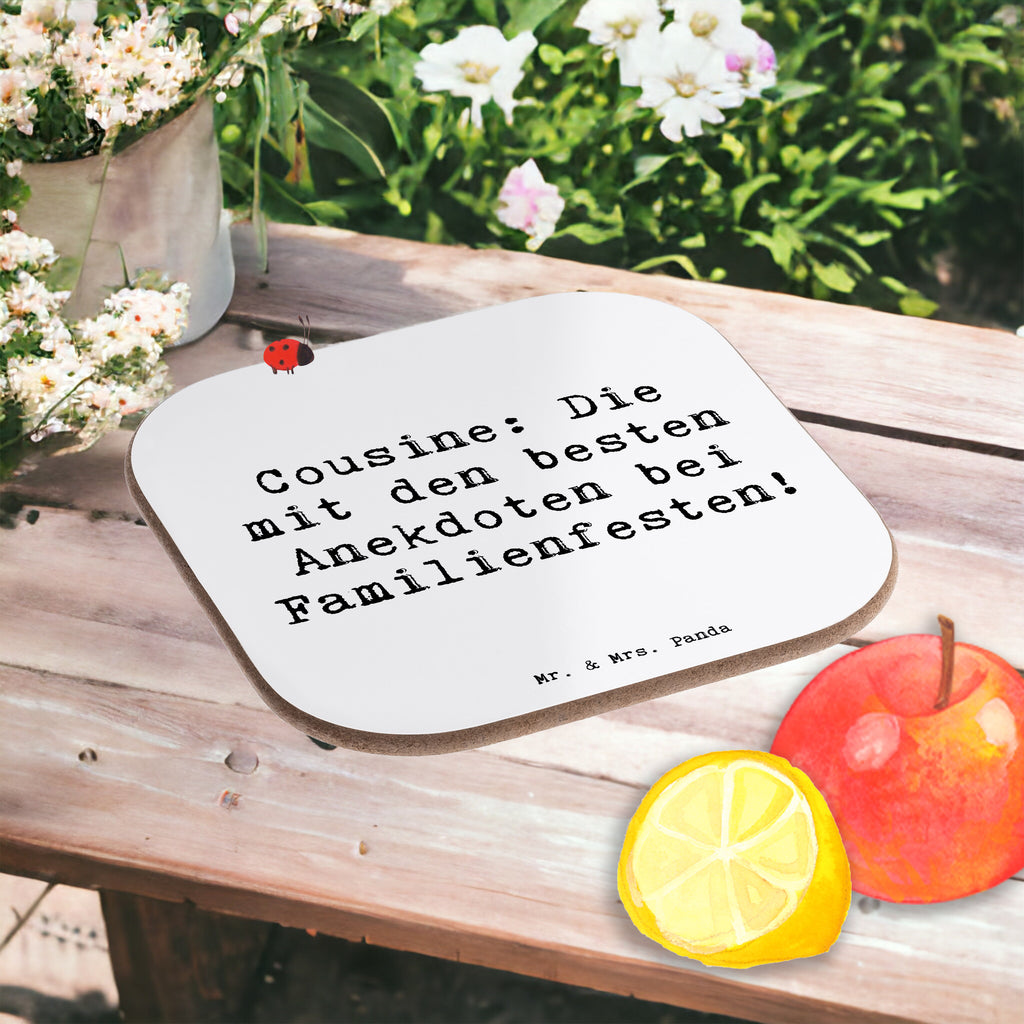 Cousine: Die
mit den besten
Anekdoten bei
Familienfesten!
Mr. & Mrs. Panda